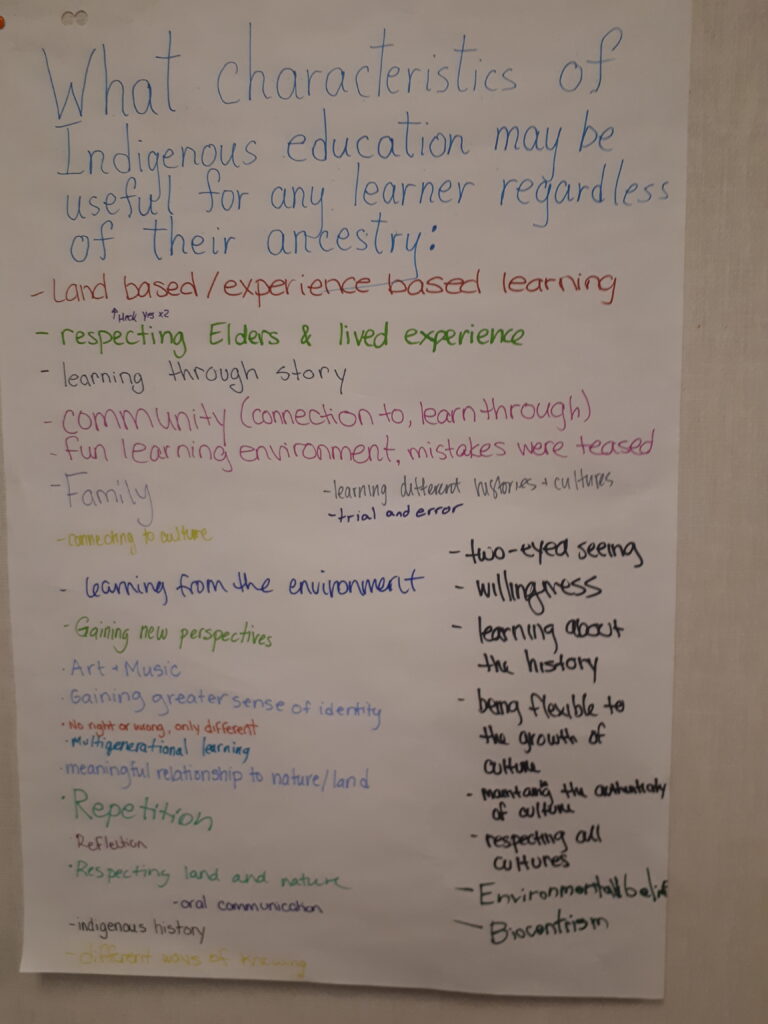 What characteristics of
Indigenous education may be
useful for any learner regardless
of their ancestry:
- Land based/experience based learning
↑ Heck yes x2
- respecting Elders & lived experience
- learning through story
- community (connection to, learn through)
- fun learning environment, mistakes were teased
- Family
- learning different histories + cultures
- trial and error
- connecting to culture
- learning from the environment
- Gaining new perspectives
· Art + Music
· Gaining greater sense of identity
· No right or wrong, only different
· Multigenerational learning
· meaningful relationship to nature/land
· Repetition
· Reflection
· Respecting land and nature
- oral communication
- indigenous history
- different ways of knowing
- two-eyed seeing
- willingness
- learning about
the history
- being flexible to
the growth of
culture
- the authenticity
of culture
- respecting all
cultures
- Environmental
- Biocentrism